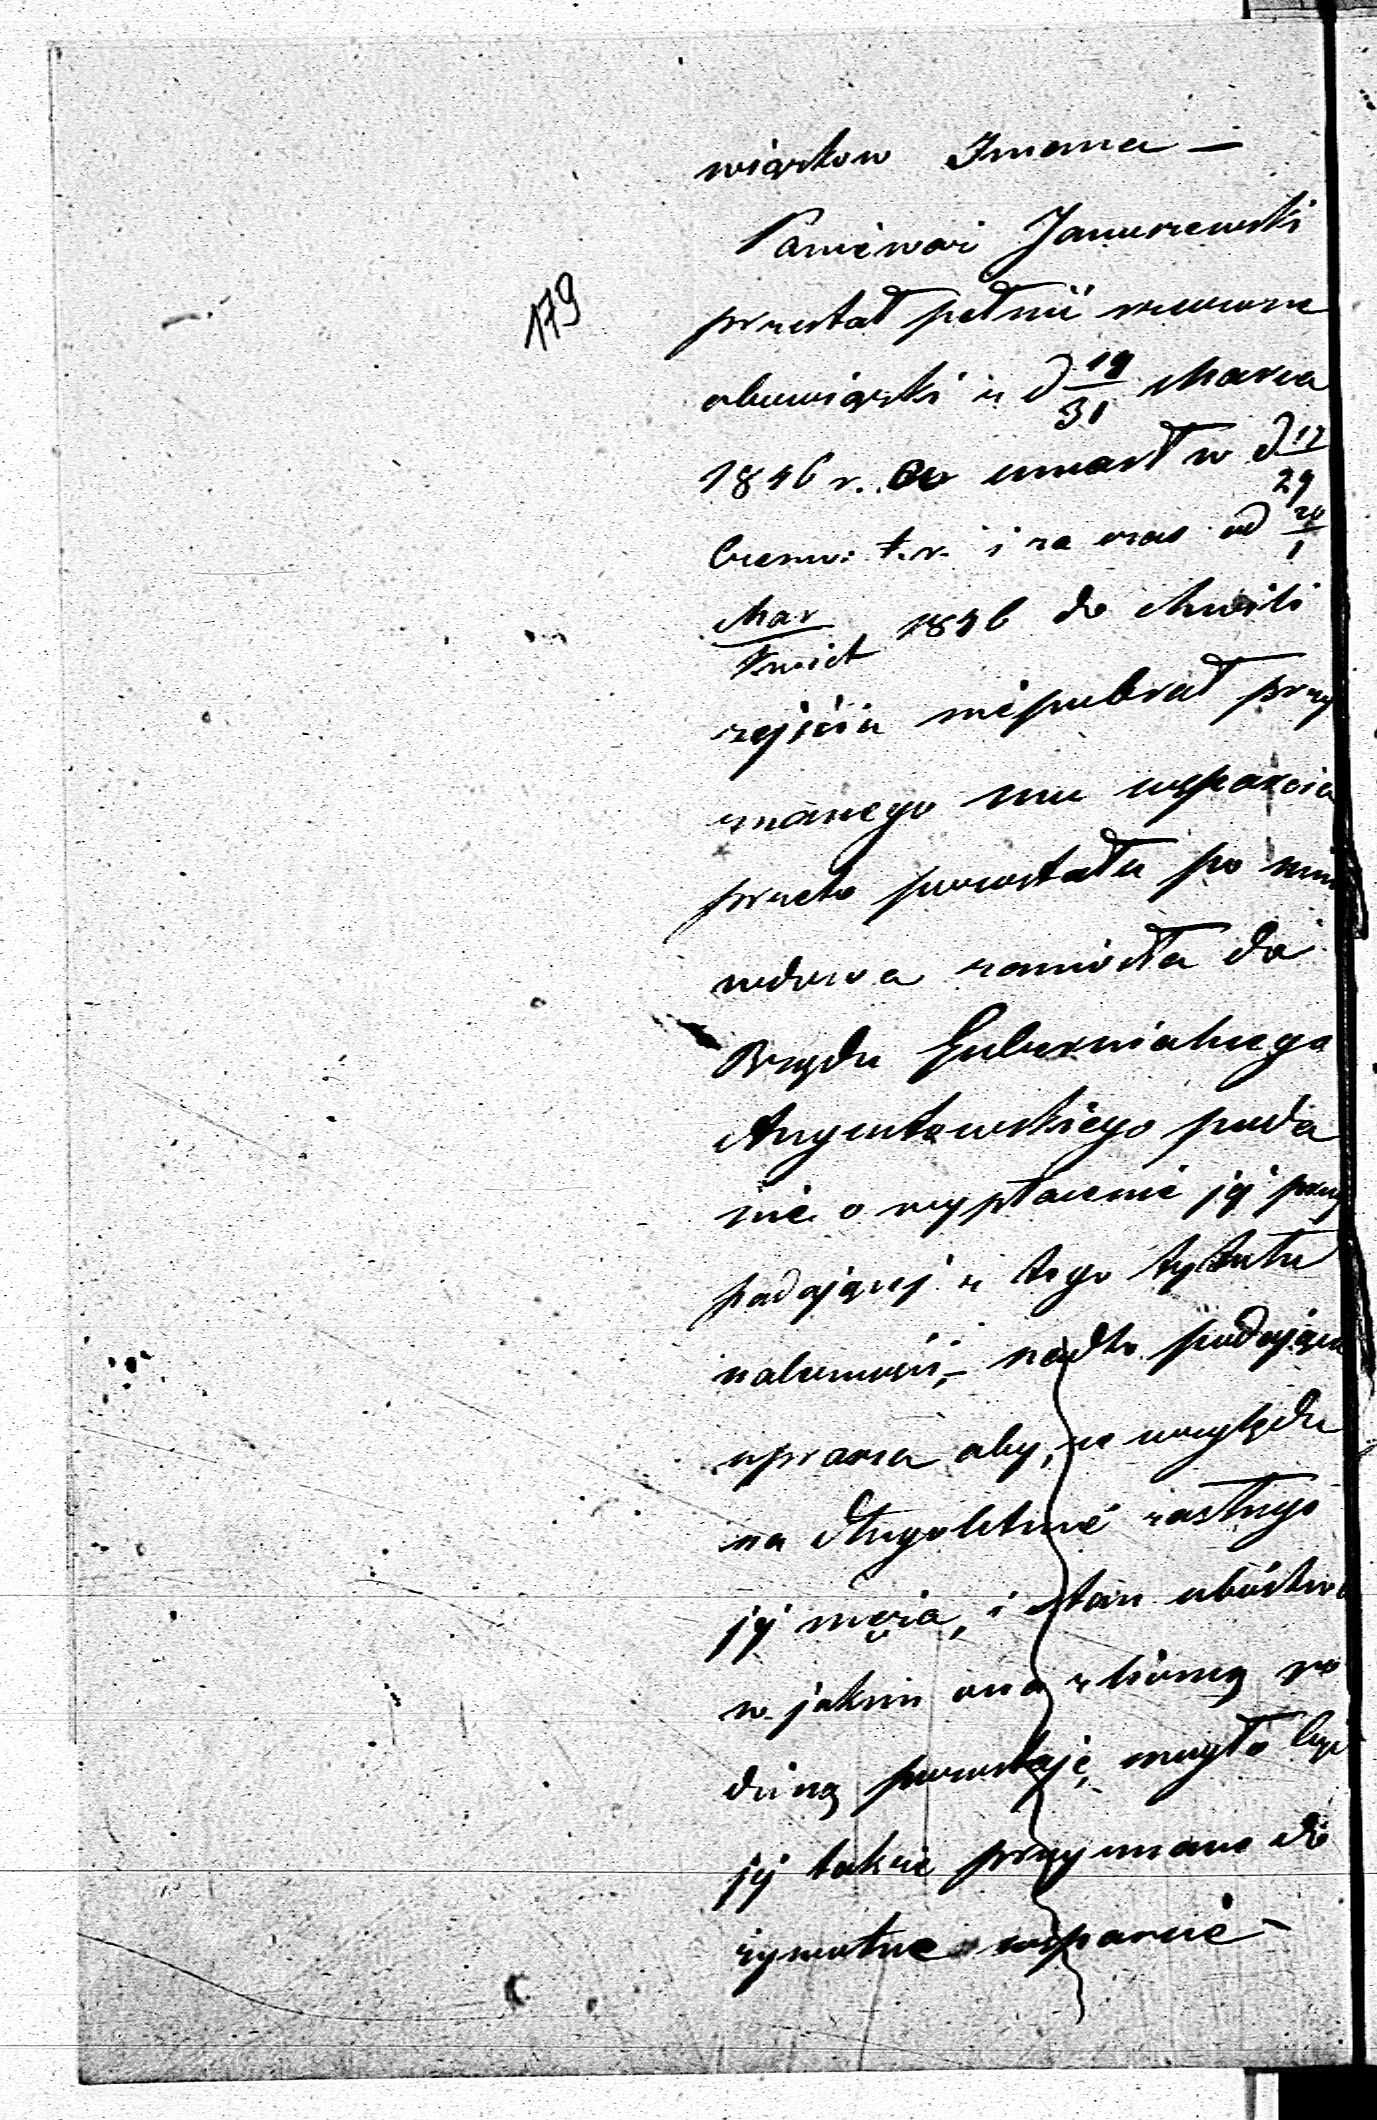 wiązków Imama —
Ponieważ Januszewski
179
przestał pełnić rzeczone
obowiązki z d 19/31 Marca
1846 r. a umarł w d 17/29
Czerw: t. r. i za czas od 20/1
Mar/Kwiet 1846 do chwili
zejścia niepobrał przy
znanego mu wsparcia
przeto pozostała po nim
wdowa zaniosła do
Rządu Gubernialnego
Augustowskiego poda
nie o wypłacenie jéj przy
padającej z tego tytułu
należności, — nadto podająca
uprasza aby, ze względu
na długoletnié zasługi
jéj męża, i stan ubóstwa
w jakim ona z liczną ro
dziną pozostaje, mogło być
jéj także przyznane do
żywotne wsparcie —